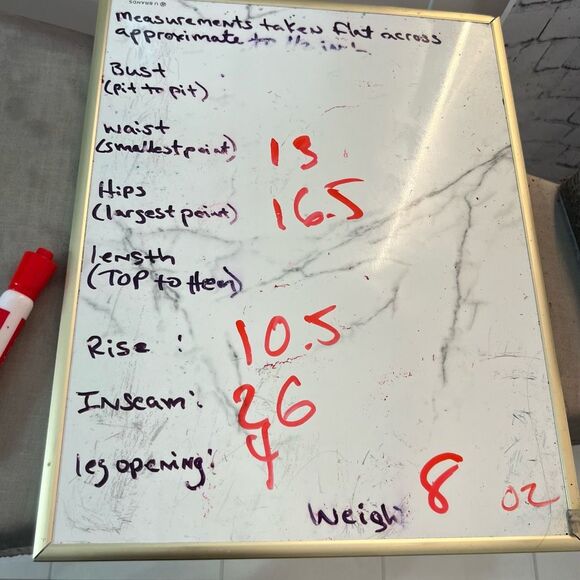 U BRANDS
Measurements taken flat across
approximate to
Bust
(pit to pit)
Waist
(smallest point) 13
Hips
(largest point) 16.5
length
(TOP to Hem)
Rise : 10.5
Inseam: 26
leg opening: 4
Weigh 8 oz